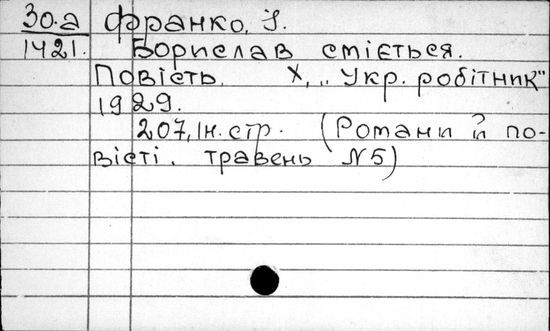 30.а Франко, І.
1421. Борислав сміється.
Повість. Х, „Укр. робітник"
1929.
207, Ін. стр. (Романи й по-
вісті. травень №5)